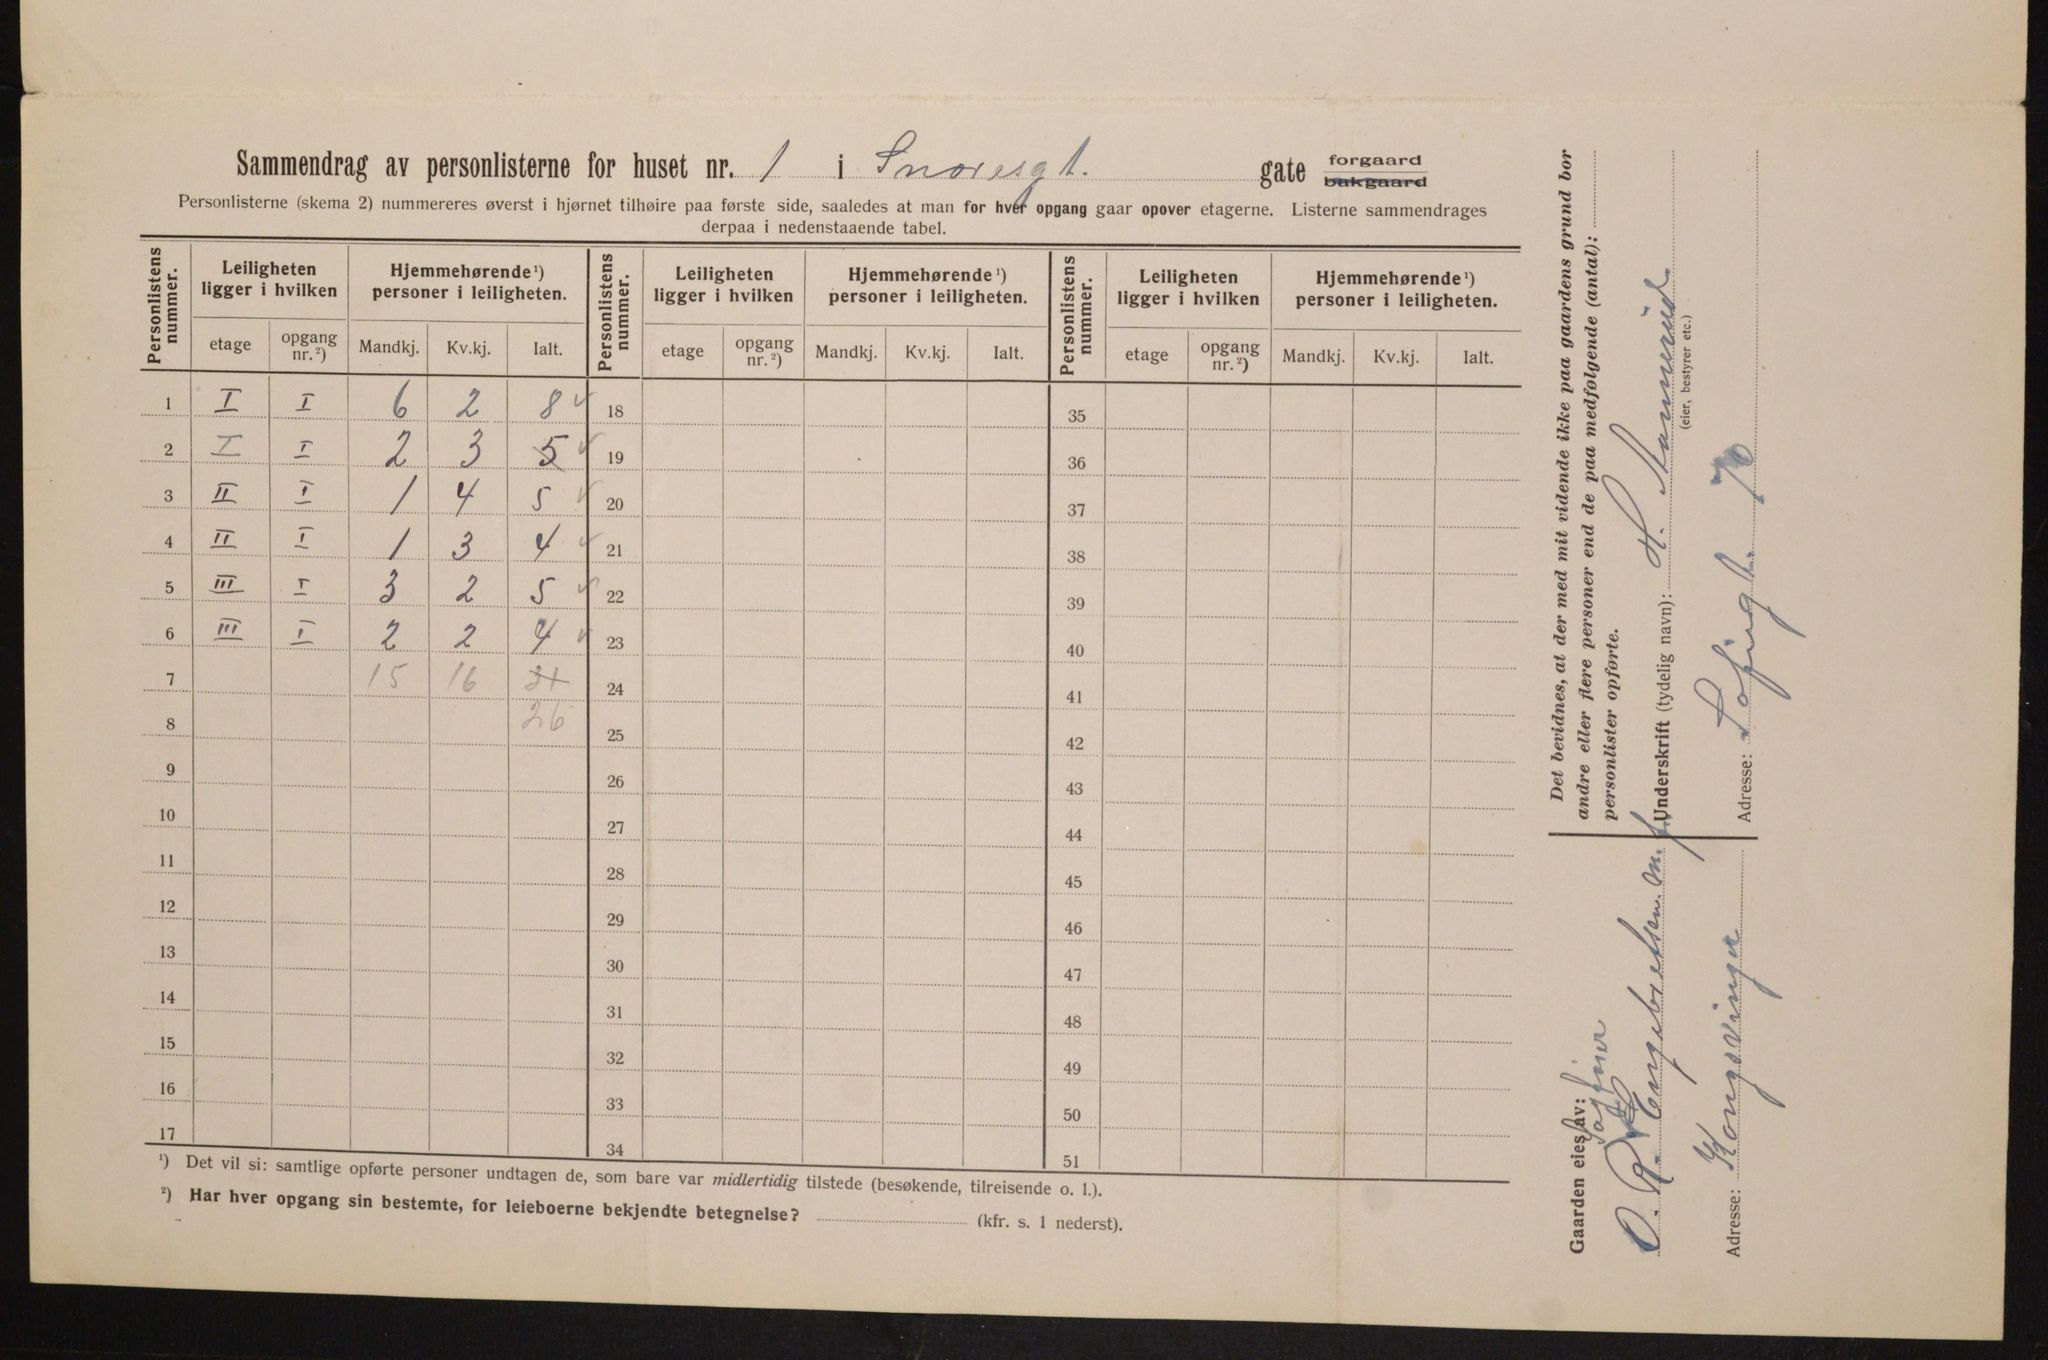 Sammendrag av personlisterne for huset nr. 1 i Snoresgt. gate forgaard bakgaard
Personlisterne (skema 2) nummereres øverst i hjørnet tilhøire paa første side, saaledes at man for hver opgang gaar opover etagerne. Listerne sammendrages
derpaa i nedenstaaende tabel.
Personlistens nummer. Leiligheten ligger i hvilken Hjemmehørende ¹) personer i leiligheten. Personlistens nummer. Leiligheten ligger i hvilken Hjemmehørende ¹) personer i leiligheten. Personlistens nummer. Leiligheten ligger i hvilken Hjemmehørende ¹) personer i leiligheten.
etage opgang nr. ²) Mandkj. Kv.kj. Ialt. etage opgang nr. ²) Mandkj. Kv.kj. Ialt. etage opgang nr. ²) Mandkj. Kv.kj. Ialt.
1 I I 6 2 8 18 35
2 I I 2 3 5 19 36
3 II I 1 4 5 20 37
4 II I 1 3 4 21 38
5 III I 3 2 5 22 39
6 III I 2 2 4 23 40
7 15 16 31 24 41
8 26 25 42
9 26 43
10 27 44
11 28 45
12 29 46
13 30 47
14 31 48
15 32 49
16 33 50
17 34 51
¹) Det vil si: samtlige opførte personer undtagen de, som bare var midlertidig tilstede (besøkende, tilreisende o. l.).
²) Har hver opgang sin bestemte, for leieboerne bekjendte betegnelse? (kfr. s. 1 nederst).
Det bevidnes, at der med mit vidende ikke paa gaardens grund bor
andre eller flere personer end de paa medfølgende (antal):
personlister opførte.
Underskrift (tydelig navn): H.
(eier, bestyrer etc.)
Adresse: Sofiegt. 70
Gaarden eies av:
O. Engebretsen m. fl.
Adresse: Kongsvinger